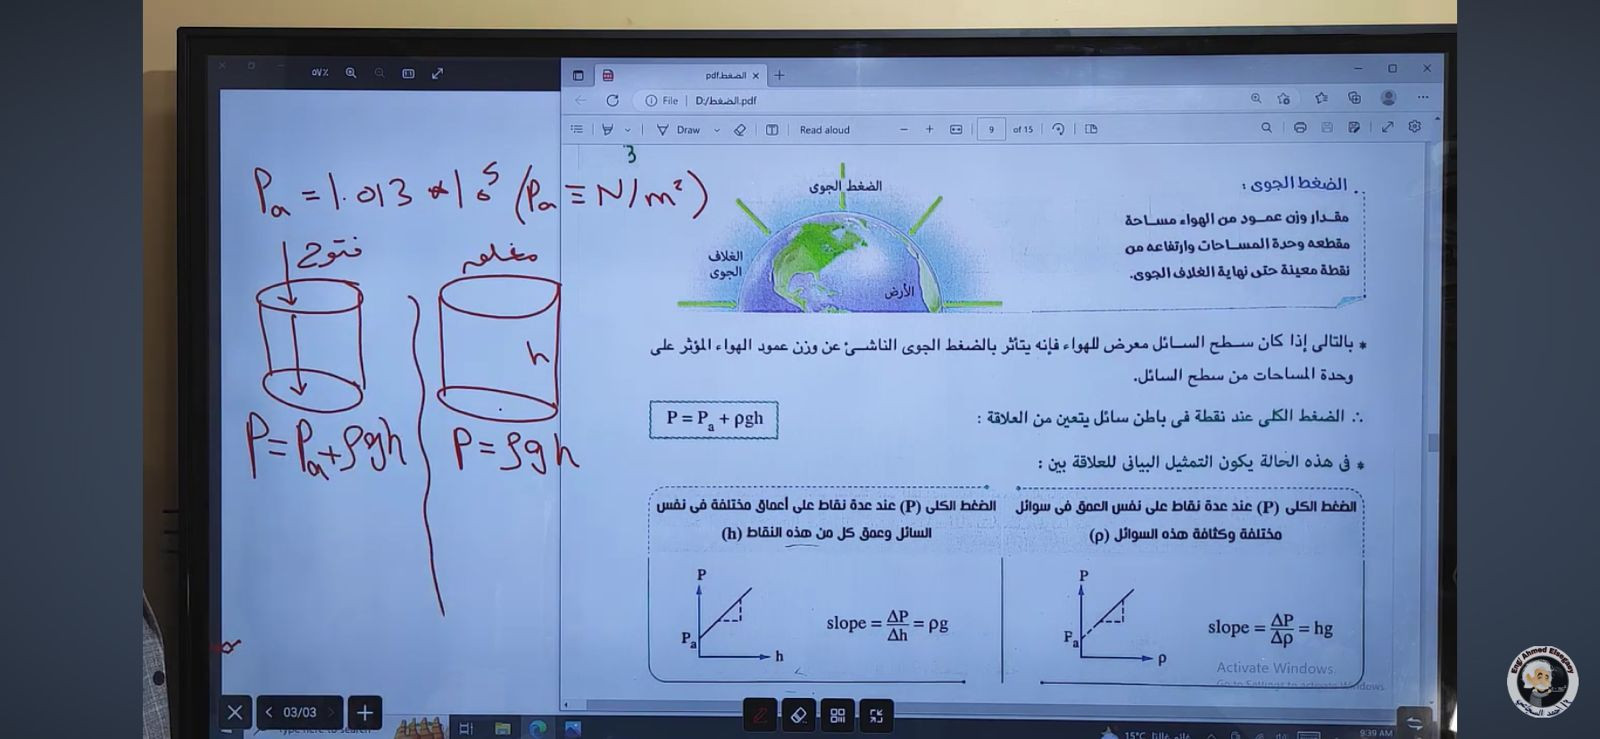 الضغط.pdf
File D:/الضغط.pdf
Draw Read aloud 9 of 15
3
Pa = 1.013 * 10^5 (Pa ≡ N/m²)
مغلق
h
P = Pa + ρgh
P = ρgh
الضغط الجوى :
مقدار وزن عمود من الهواء مساحة
مقطعه وحدة المساحات وارتفاعه من
نقطة معينة حتى نهاية الغلاف الجوى.
الضغط الجوى
الغلاف
الجوى
الأرض
* بالتالى إذا كان سطح السائل معرض للهواء فإنه يتأثر بالضغط الجوى الناشئ عن وزن عمود الهواء المؤثر على
وحدة المساحات من سطح السائل.
∴ الضغط الكلى عند نقطة فى باطن سائل يتعين من العلاقة :
P = Pa + ρgh
* فى هذه الحالة يكون التمثيل البيانى للعلاقة بين :
الضغط الكلى (P) عند عدة نقاط على نفس العمق فى سوائل
مختلفة وكثافة هذه السوائل (ρ)
P
Pa
ρ
slope = ΔP/Δρ = hg
الضغط الكلى (P) عند عدة نقاط على أعماق مختلفة فى نفس
السائل وعمق كل من هذه النقاط (h)
P
Pa
h
slope = ΔP/Δh = ρg
Activate Windows
Go to Settings to activate Windows.
03/03
Type here to search
15°C
9:39 AM
Eng/ Ahmed Elsegaey